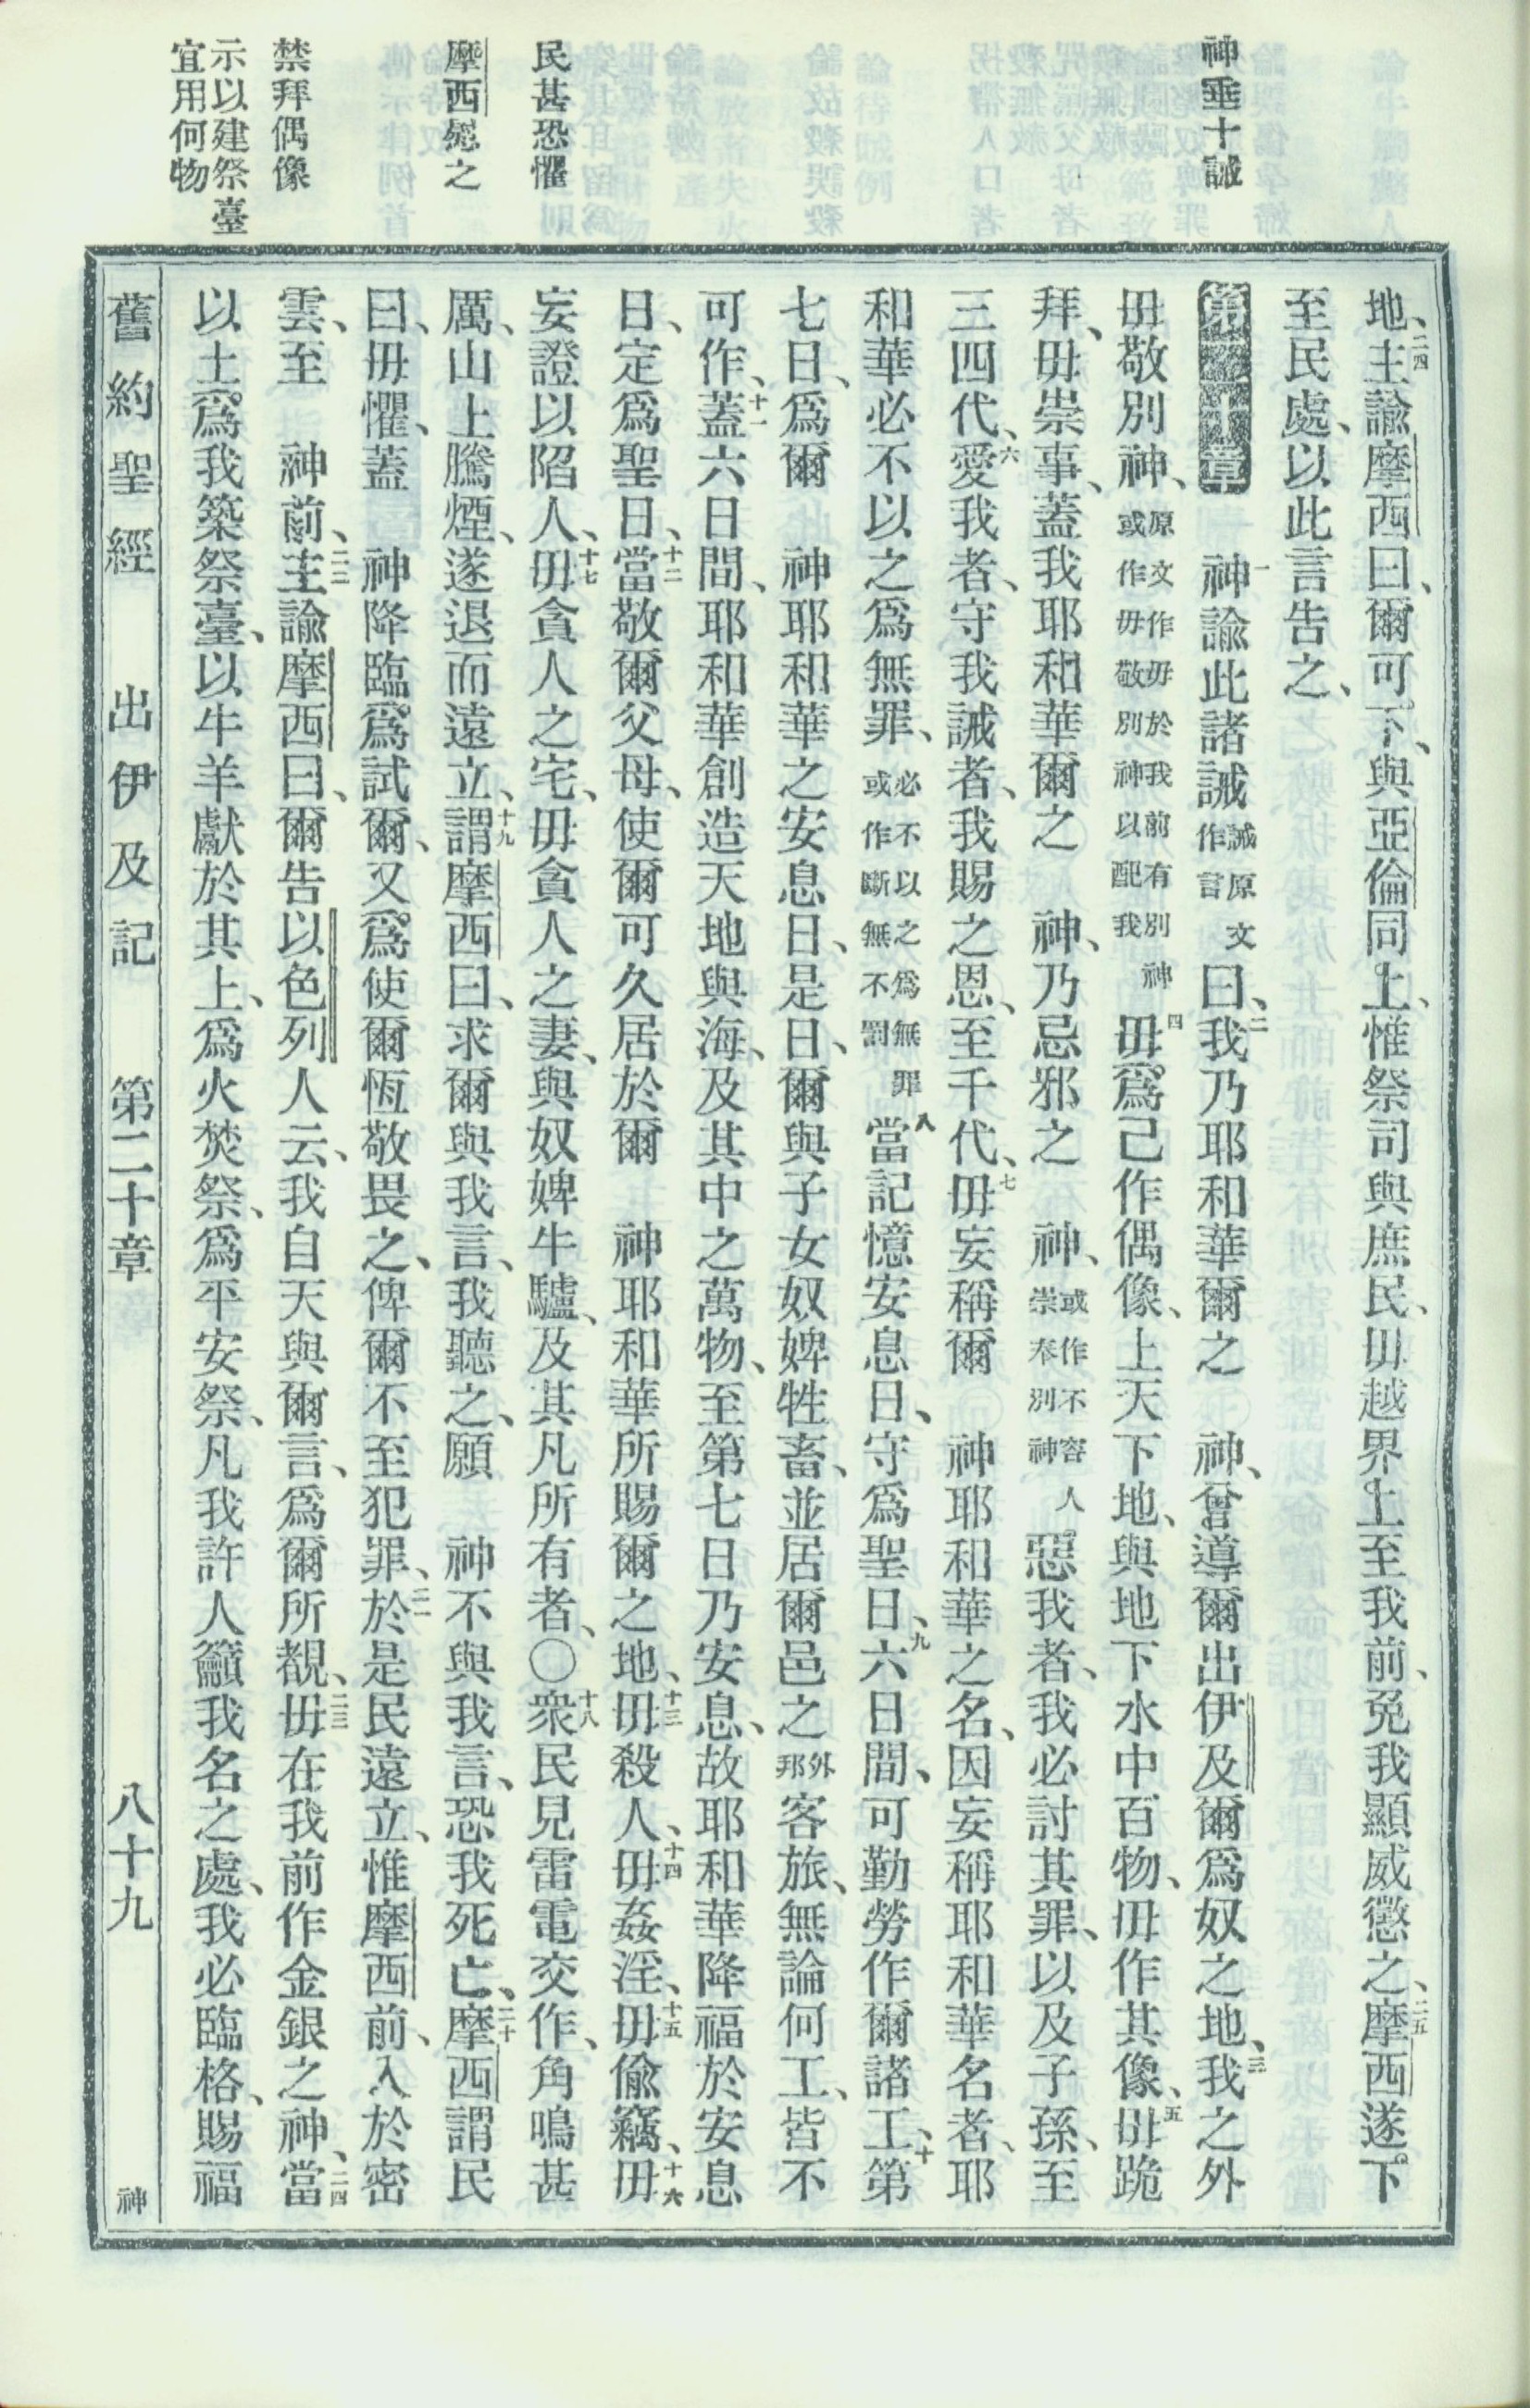 神垂十誡
民甚恐懼
摩西慰之
禁拜偶像
示以建祭臺
宜用何物
地、二四主諭摩西曰、爾可下、與亞倫同上、惟祭司與庶民、毋越界上至我前、免我顯威懲之、二五摩西遂下
至民處、以此言告之、
第二十章 一神諭此諸誡誡原文作言曰、二我乃耶和華爾之 神、曾導爾出伊及爾爲奴之地、三我之外
毋敬別神、原文作毋於我前有別神或作毋敬別神以配我四毋爲己作偶像、上天下地、與地下水中百物、毋作其像、五毋跪
拜、毋崇事、蓋我耶和華爾之 神、乃忌邪之 神、或作不容人崇奉別神惡我者、我必討其罪、以及子孫、至
三四代、六愛我者、守我誡者、我賜之恩、至千代、七毋妄稱爾 神耶和華之名、因妄稱耶和華名者、耶
和華必不以之爲無罪、必不以之爲無罪或作斷無不罰八當記憶安息日、守爲聖日、九六日間、可勤勞作爾諸工、十第
七日、爲爾 神耶和華之安息日、是日、爾與子女奴婢牲畜、並居爾邑之外邦客旅、無論何工、皆不
可作、十一蓋六日間、耶和華創造天地與海、及其中之萬物、至第七日乃安息、故耶和華降福於安息
日、定爲聖日、十二當敬爾父母、使爾可久居於爾 神耶和華所賜爾之地、十三毋殺人、十四毋姦淫、十五毋偷竊、十六毋
妄證以陷人、十七毋貪人之宅、毋貪人之妻、與奴婢牛驢、及其凡所有者、〇十八衆民見雷電交作、角鳴甚
厲、山上騰煙、遂退而遠立、十九謂摩西曰、求爾與我言、我聽之、願 神不與我言、恐我死亡、二十摩西謂民
曰、毋懼、蓋 神降臨、爲試爾、又爲使爾恆敬畏之、俾爾不至犯罪、二一於是民遠立、惟摩西前、入於密
雲、至 神前、二二主諭摩西曰、爾告以色列人云、我自天與爾言、爲爾所覩、二三毋在我前作金銀之神、二四當
以土爲我築祭臺、以牛羊獻於其上、爲火焚祭、爲平安祭、凡我許人籲我名之處、我必臨格、賜福
舊約聖經 出伊及記 第二十章 八十九 神